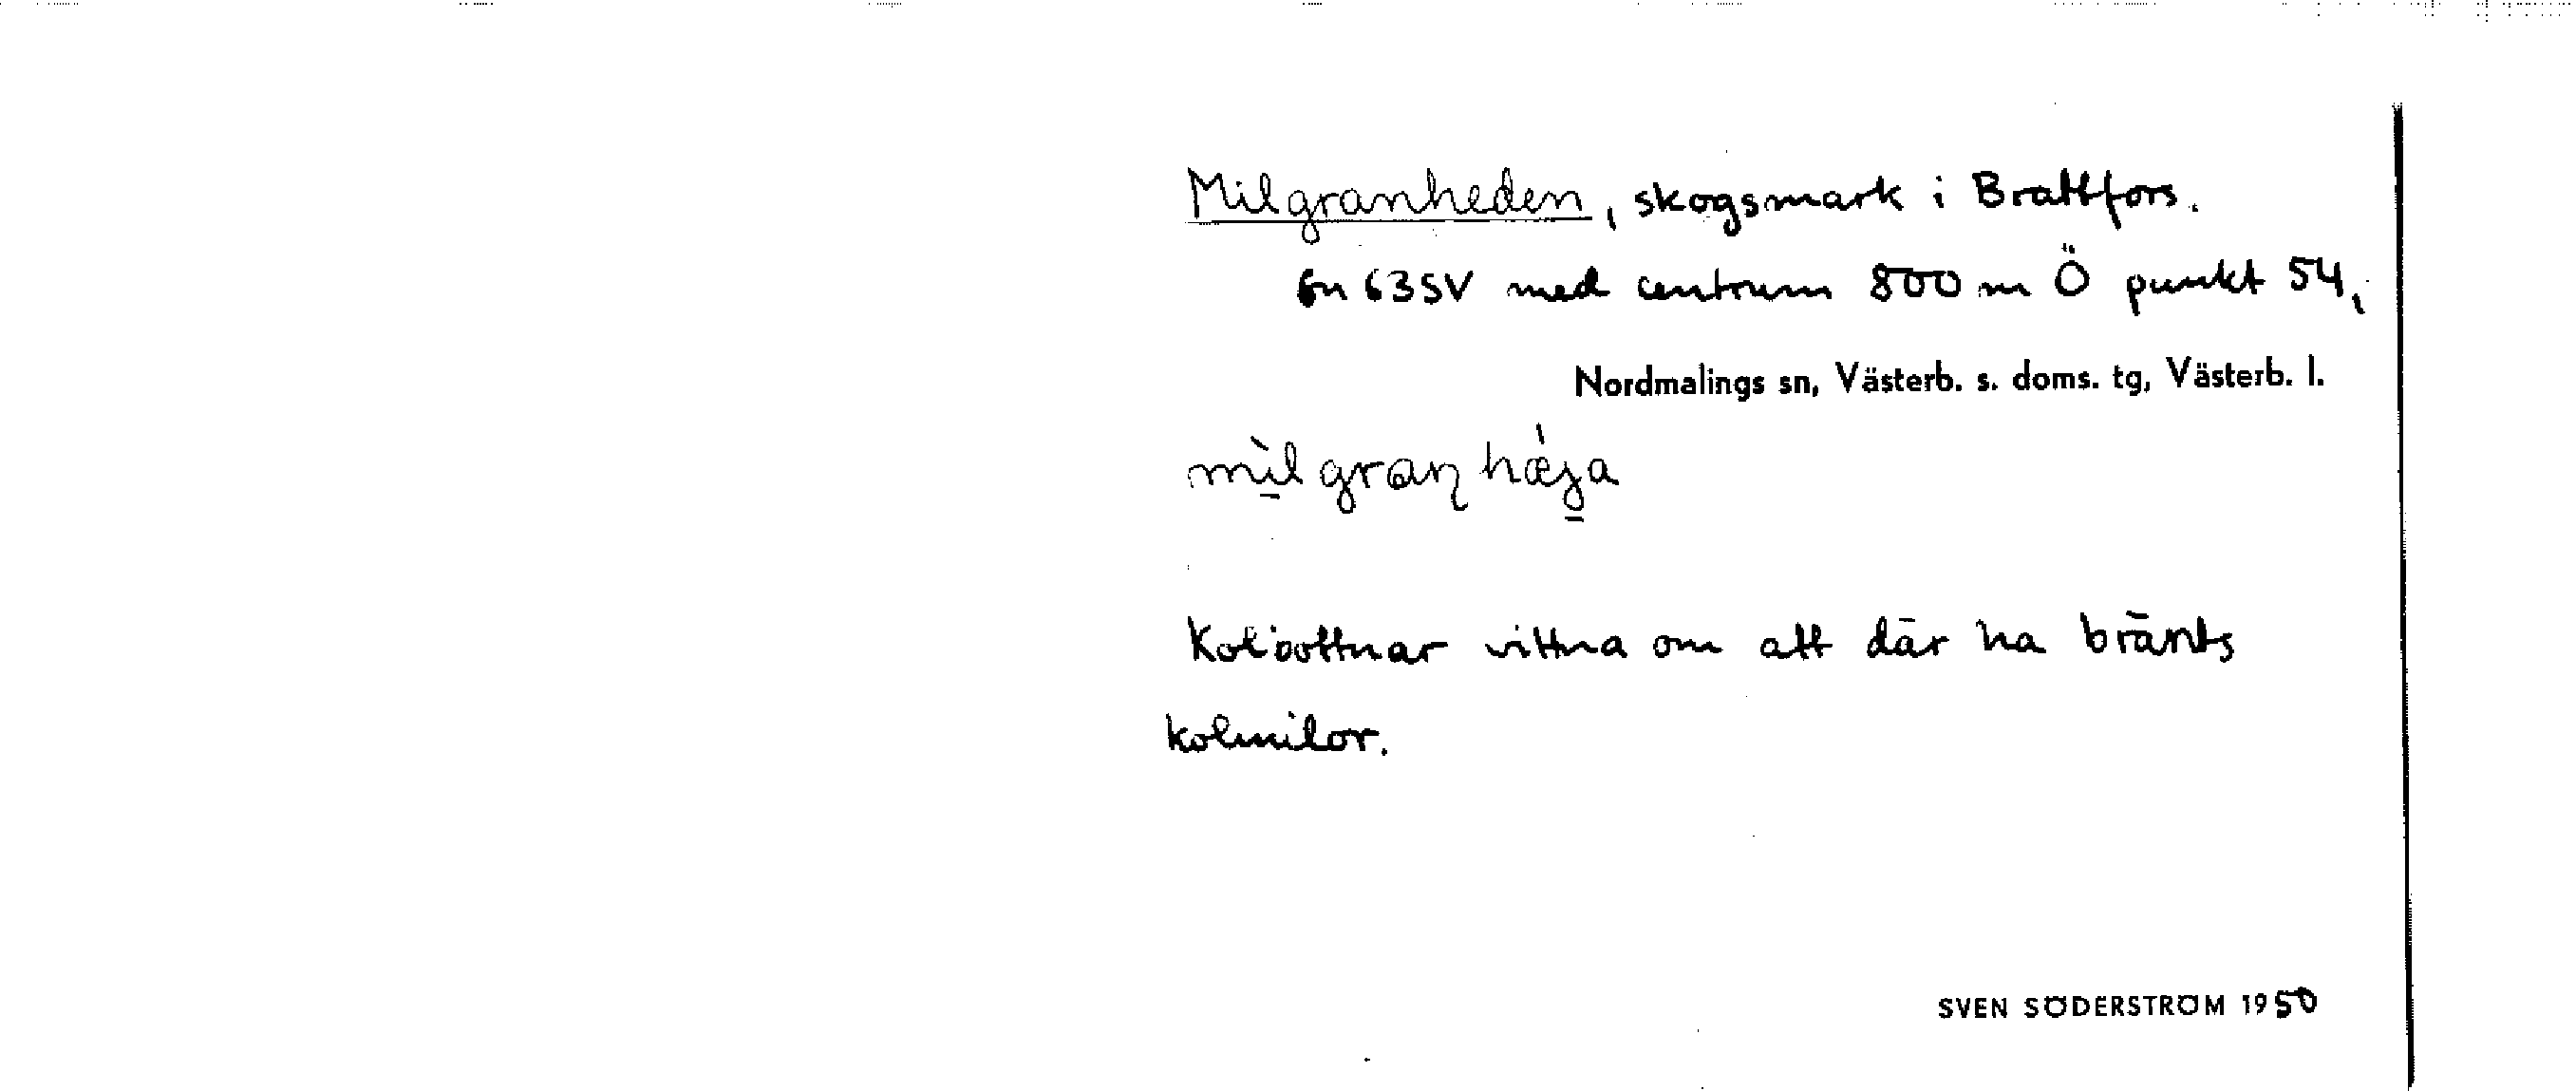 Milgranheden, skogsmark i Brattfors.
63SV med centrum 800 m Ö punkt 54,
Nordmalings sn, Västerb. s. doms. tg, Västerb. l.
Kolbottnar vittna om att där ha bränts
kolmilor.
SVEN SÖDERSTRÖM 1950